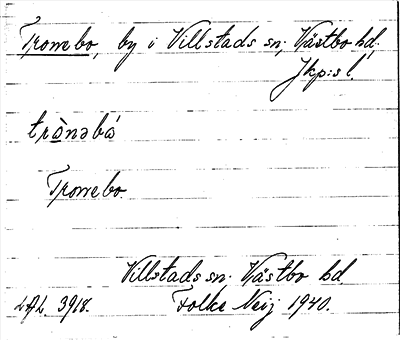 Tronebo, by i Villstads sn, Västbo hd.
Jkp:s l.
trònəbó
Tronebo
Villstads sn. Västbo hd.
LAL. 3918. Folke Neij 1940.